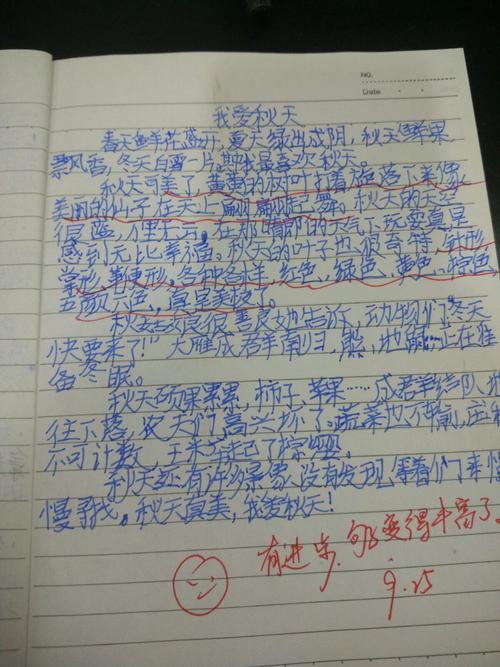 NO.
Date
我爱秋天
春天鲜花盛开，夏天绿出成阴，秋天鲜果
飘香，冬天白雪一片，我最喜欢秋天。
秋天可美了，黄黄的树叶打着旋落下来像
美丽的仙子在天上翩翩起舞。秋天的天空
很蓝，在那晴朗的天气下玩耍真是
感到无比幸福。秋天的叶子也很奇特，针形
掌形，鞭形，各种各样，红色、绿色、黄色、棕色
五颜六色，真是美极了。
秋姑娘很善良她告诉，动物们“冬天
快要来了！”大雁成群南归，熊，地鼠，正在准
备冬眠。
秋天硕果累累，柿子、苹果……成群结队
往下落，农天们高兴坏了。蔬菜也不输，
不可计数，玉米
秋天还有许多景象，没有发现，等着们来慢
慢寻找。秋天真美，我爱秋天！
有进步，句段变得丰富了。
9.25